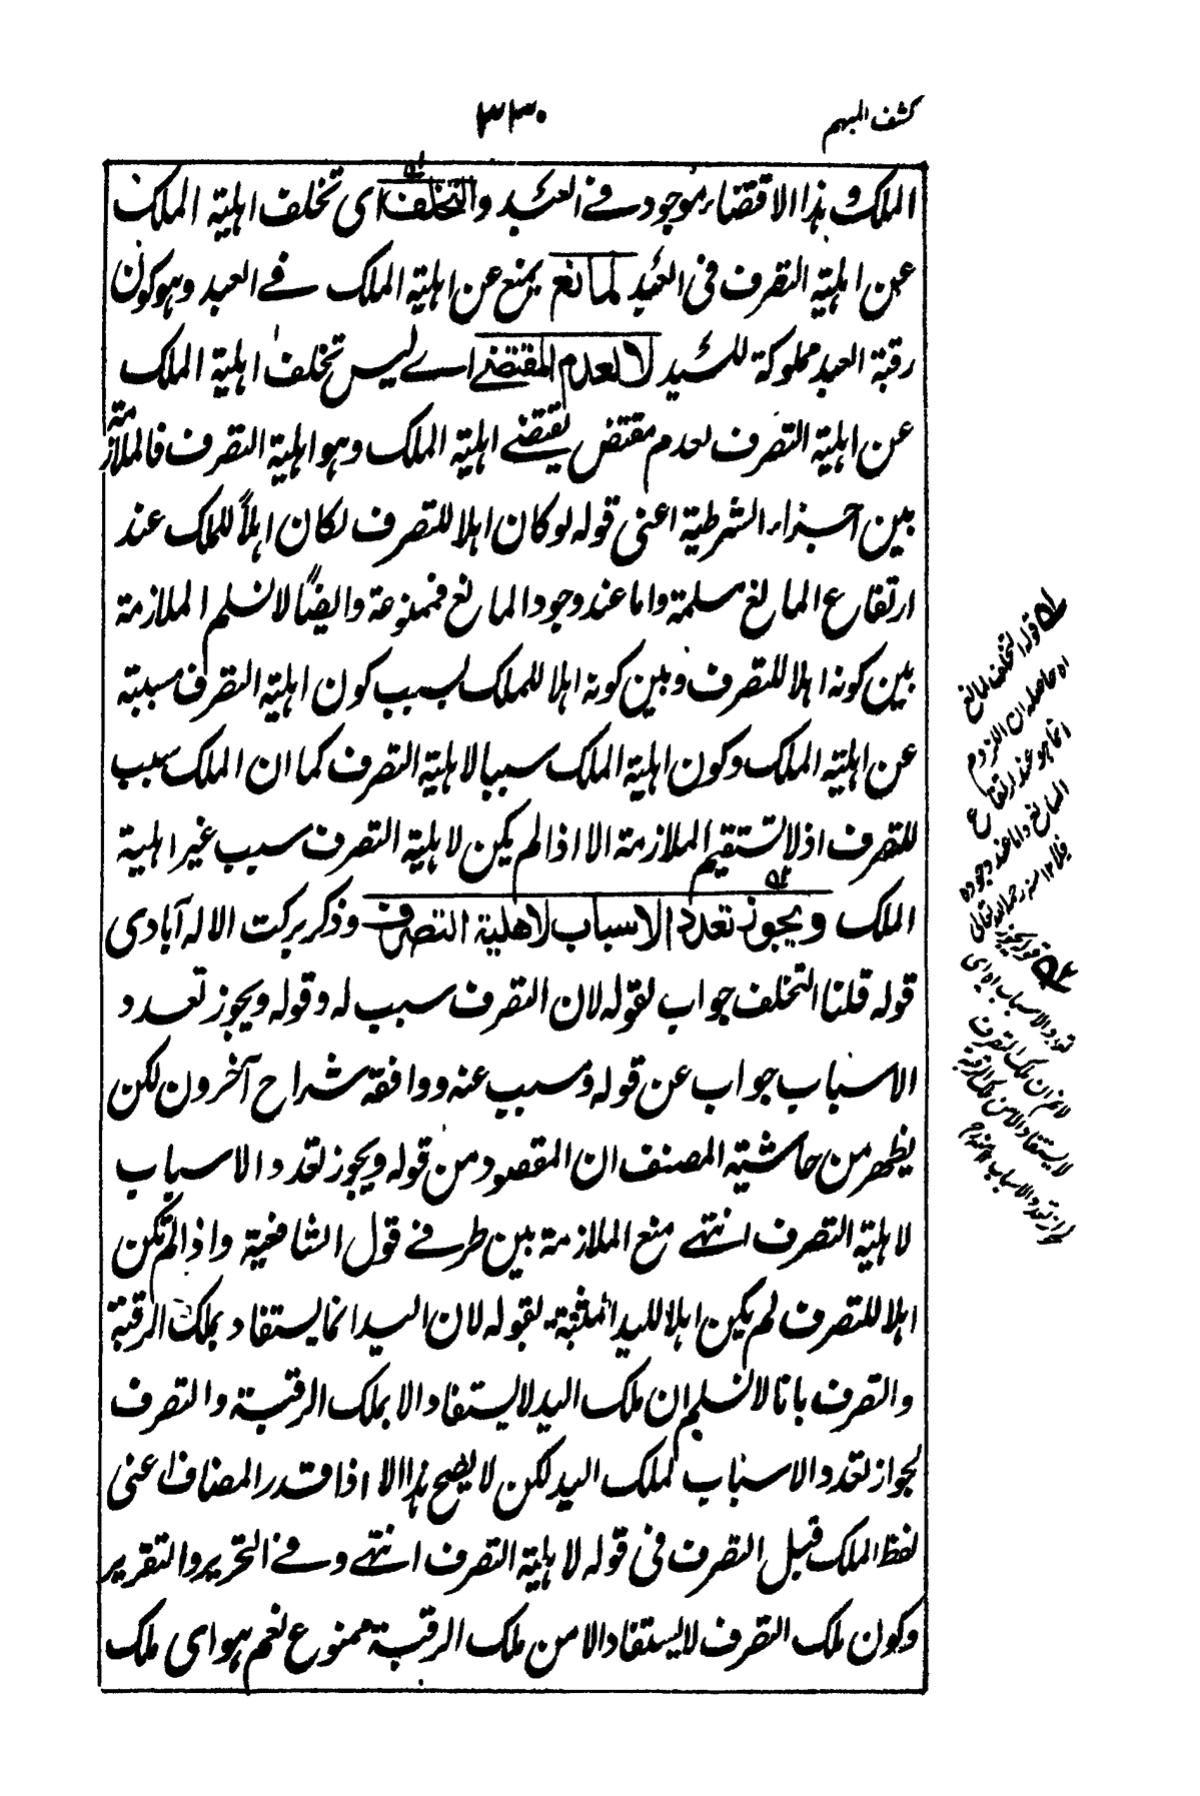 كشف المبهم
٣٣٠
الملك وهذا الاقتضاء موجود في العبد والتخلف اى تخلف اهلية الملك
عن اهلية التصرف فى العبد لمانع يمنع عن اهلية الملك في العبد وهو كون
رقبة العبد مملوكة للسيد لا لعدم المقتضے اے ليس تخلف اهلية الملك
عن اهلية التصرف لعدم مقتض يقتضے اهلية الملك وهو اهلية التصرف فالملازمة
بين اجزاء الشرطية اعنى قوله لو كان اهلا للتصرف لكان اهلاً للملك عند
ارتفاع المانع مسلمة واما عند وجود المانع فممنوعة وايضًا لا نسلم الملازمة
بين كونه اهلا للتصرف وبين كونه اهلا للملك بسبب كون اهلية التصرف مسببة
عن اهلية الملك وكون اهلية الملك سببا لاهلية التصرف كما ان الملك سبب
للتصرف اذ لا تستقيم الملازمة الا اذا لم يكن لاهلية التصرف سبب غير اهلية
الملك ويجوز تعدد الاسباب لاهلية التصرف وذكر بركت الاله آبادى
قوله قلنا التخلف جواب لقوله لان التصرف سبب له وقوله ويجوز تعدد
الاسباب جواب عن قوله ومسبب عنه ووافقه شراح آخرون لكن
يظهر من حاشية المصنف ان المقصود من قوله ويجوز تعدد الاسباب
لاهلية التصرف انتهے منع الملازمة بين طرفے قول الشافعية واذا لم يكن
اهلا للتصرف لم يكن اهلا لليد المثبتة بقوله لان اليد انما يستفاد بملك الرقبة
والتصرف بانا لا نسلم ان ملك اليد لا يستفاد الا بملك الرقبة والتصرف
لجواز تعدد الاسباب لملك اليد لكن لا يصح هذا الا اذا قدر المضاف اعنى
لفظ الملك قبل التصرف فى قوله لاهلية التصرف انتهے وفے التحرير والتقرير
وكون ملك التصرف لا يستفاد الا من ملك الرقبة ممنوع نعم هو اى ملك
١ه قوله التخلف لمانع
اه حاصله ان اللزوم
انما هو عند ارتفاع
المانع واما عند وجوده
فلا ١٢ منه رحمه الله تعالى
٢ه قوله يجوز
تعدد الاسباب اه اى
لا نم ان ملك التصرف
لا يستفاد الا من ملك الرقبة
لجواز تعدد الاسباب